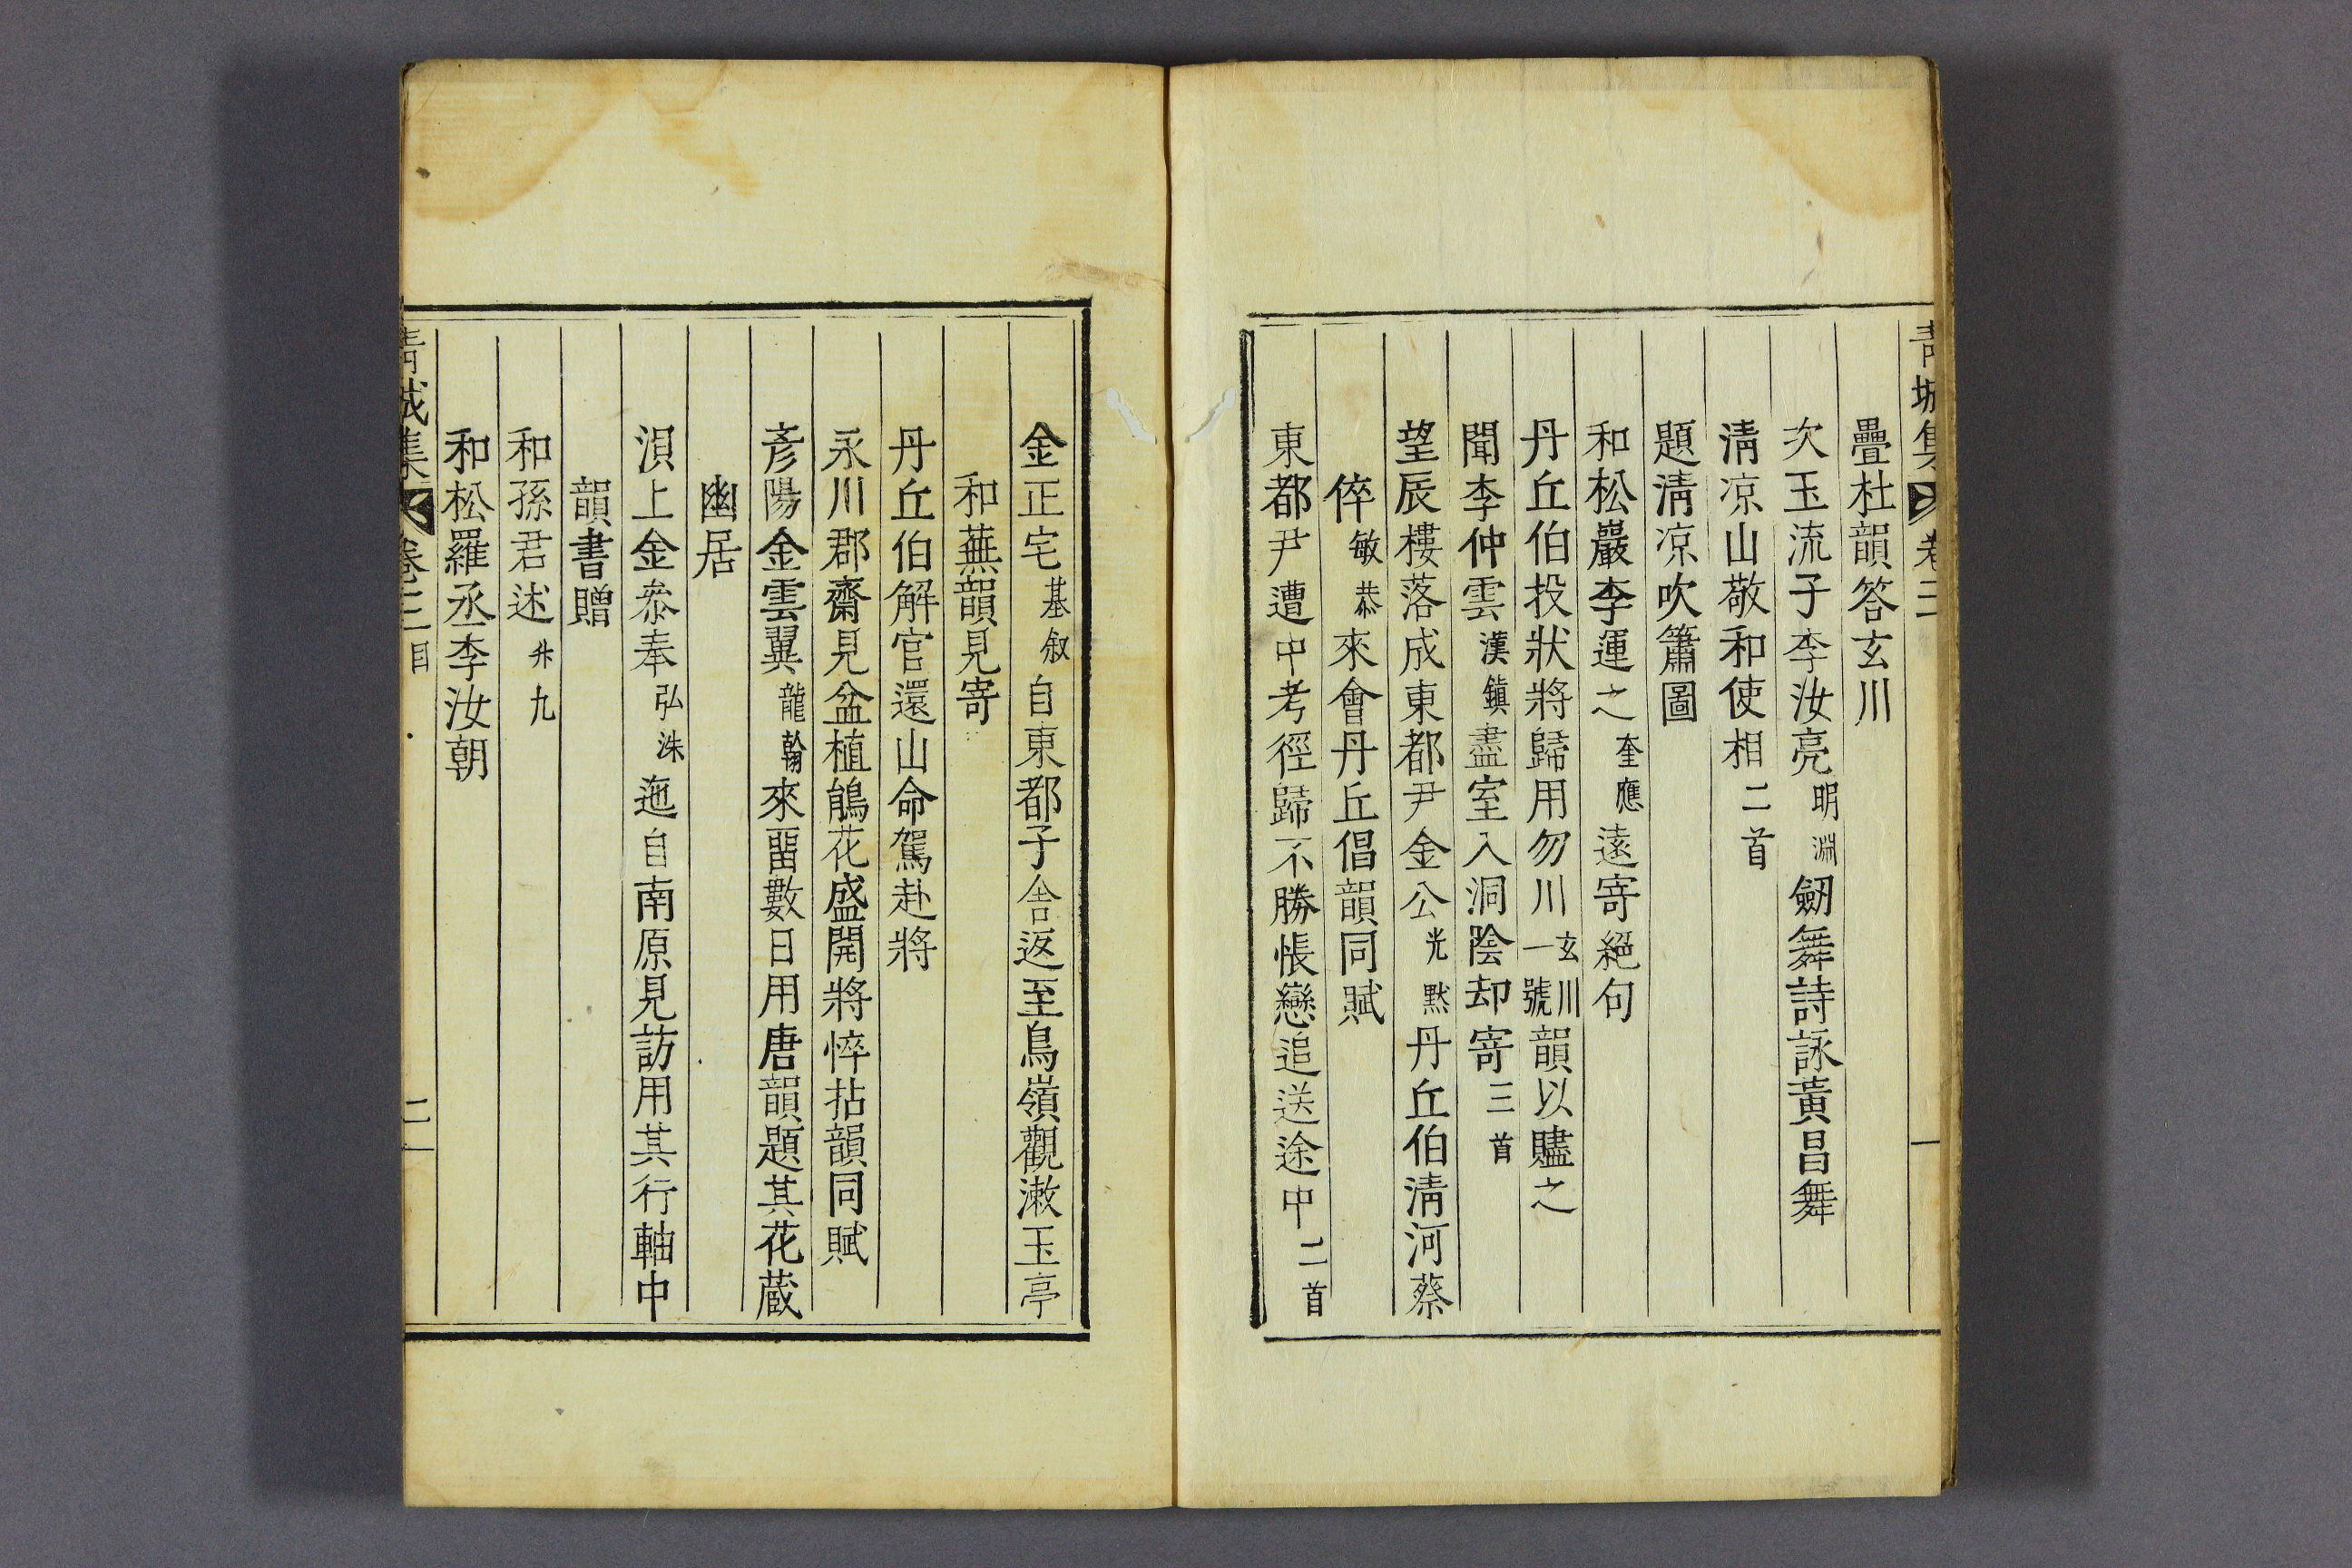 靑城集 卷三 一
疊杜韻答玄川
次玉流子李汝亮明淵劒舞詩詠黃昌舞
淸凉山敬和使相二首
題淸凉吹簫圖
和松巖李運之奎應遠寄絕句
丹丘伯投狀將歸用勿川玄川一號韻以贐之
聞李仲雲漢鎭盡室入洞陰却寄三首
望辰樓落成東都尹金公光默丹丘伯淸河蔡
倅敏恭來會丹丘倡韻同賦
東都尹遭中考徑歸不勝悵戀追送途中二首
金正宅基叙自東都子舍返至鳥嶺觀漱玉亭
和蕪韻見寄
丹丘伯解官還山命駕赴將
永川郡齋見盆植鵑花盛開將悴拈韻同賦
彥陽金雲翼龍翰來留數日用唐韻題其花蔵
幽居
浿上金叅奉弘洙迤自南原見訪用其行軸中
韻書贈
和孫君述升九
和松羅丞李汝朝
靑城集 卷三目 二